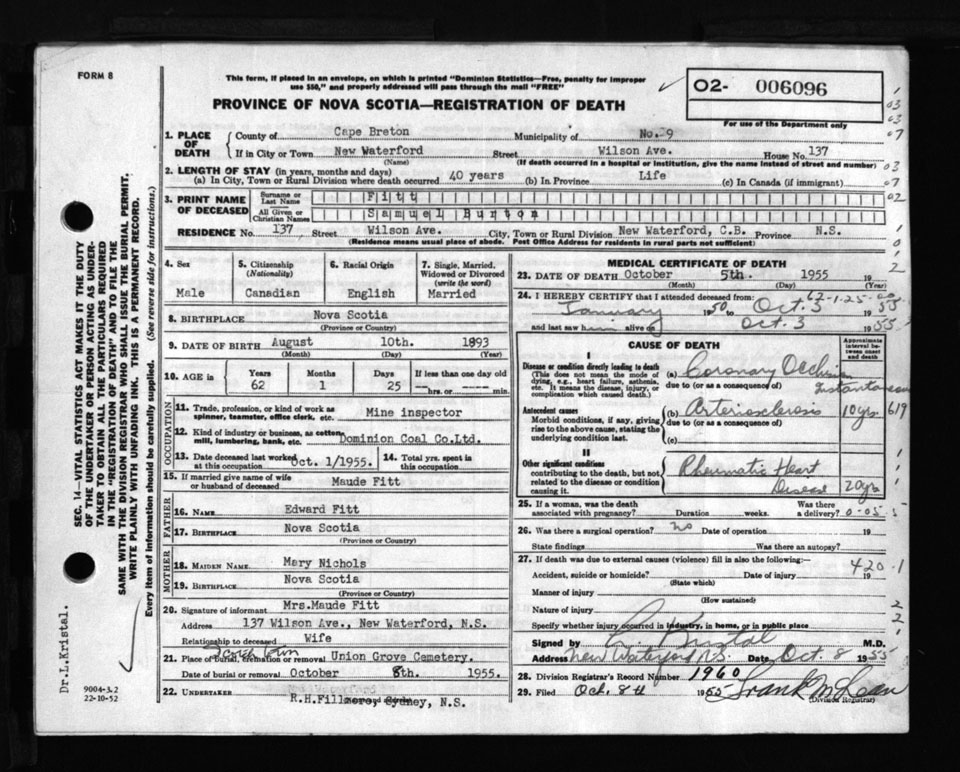 FORM 8
This form, if placed in an envelope, on which is printed "Dominion Statistics—Free, penalty for improper
use $50," and properly addressed will pass through the mail "FREE"
02- 006096
For use of the Department only
PROVINCE OF NOVA SCOTIA—REGISTRATION OF DEATH
1. PLACE OF DEATH
County of Cape Breton Municipality of No. 9
If in City or Town New Waterford Street Wilson Ave. House No. 137
(Name) (If death occurred in a hospital or institution, give the name instead of street and number)
2. LENGTH OF STAY (in years, months and days)
(a) In City, Town or Rural Division where death occurred 40 years (b) In Province Life (c) In Canada (if immigrant)
3. PRINT NAME OF DECEASED
Surname or Last Name Fitt
All Given or Christian Names Samuel Burton
RESIDENCE No. 137, Street Wilson Ave. City, Town or Rural Division New Waterford, C.B. Province N.S.
(Residence means usual place of abode. Post Office Address for residents in rural parts not sufficient)
4. Sex
Male
5. Citizenship (Nationality)
Canadian
6. Racial Origin
English
7. Single, Married, Widowed or Divorced (write the word)
Married
8. BIRTHPLACE Nova Scotia
(Province or Country)
9. DATE OF BIRTH August 10th. 1893
(Month) (Day) (Year)
10. AGE in Years Months Days If less than one day
62 1 25 hrs. or min.
OCCUPATION
11. Trade, profession, or kind of work as spinner, teamster, office clerk, etc. Mine inspector
12. Kind of industry or business, as cotton mill, lumbering, bank, etc. Dominion Coal Co.Ltd.
13. Date deceased last worked at this occupation Oct. 1/1955.
14. Total yrs. spent in this occupation
15. If married give name of wife or husband of deceased Maude Fitt
FATHER
16. NAME Edward Fitt
17. BIRTHPLACE Nova Scotia
(Province or Country)
MOTHER
18. MAIDEN NAME Mary Nichols
19. BIRTHPLACE Nova Scotia
(Province or Country)
20. Signature of informant Mrs.Maude Fitt
Address 137 Wilson Ave., New Waterford, N.S.
Relationship to deceased Wife
21. Place of burial, cremation or removal Union Grove Cemetery.
Date of burial or removal October 8th. 1955.
22. UNDERTAKER
R.H.Fillmore, Sydney, N.S.
MEDICAL CERTIFICATE OF DEATH
23. DATE OF DEATH October 5th. 1955 19
(Month) (Day)
62-1-25
24. I HEREBY CERTIFY that I attended deceased from:
January 1950 to Oct. 3 1955
and last saw him alive on Oct. 3 1955
CAUSE OF DEATH
Approximate interval between onset and death
I
Disease or condition directly leading to death
(This does not mean the mode of dying, e.g., heart failure, asthenia, etc. It means the disease, injury, or complication which caused death.)
(a) Coronary Occlusion
due to (or as a consequence of)
Instantaneous
Antecedent causes
Morbid conditions, if any, giving rise to the above cause, stating the underlying condition last.
(b) Arteriosclerosis 10 yrs. 619
due to (or as a consequence of)
(c)
II
Other significant conditions
contributing to the death, but not related to the disease or condition causing it.
Rheumatic Heart
Disease 20 yrs
25. If a woman, was the death associated with pregnancy? Duration weeks. Was there a delivery?
26. Was there a surgical operation? no Date of operation 19
State findings Was there an autopsy?
27. If death was due to external causes (violence) fill in also the following:—
420.1
Accident, suicide or homicide? Date of injury 19
(State which)
Manner of injury
(How sustained)
Nature of injury
Specify whether injury occurred in industry, in home, or in public place
Signed by L. Kristal M.D.
Address New Waterford N.S. Date Oct. 8 1955
28. Division Registrar's Record Number 1960
29. Filed Oct. 8th 1955 Frank McLean
(Division Registrar)
SEC. 14—VITAL STATISTICS ACT MAKES IT THE DUTY
OF THE UNDERTAKER OR PERSON ACTING AS UNDER-
TAKER TO OBTAIN ALL THE PARTICULARS REQUIRED
IN THE "REGISTRATION OF DEATH" AND TO FILE THE
SAME WITH THE DIVISION REGISTRAR WHO SHALL ISSUE THE BURIAL PERMIT.
WRITE PLAINLY WITH UNFADING INK. THIS IS A PERMANENT RECORD.
Every item of information should be carefully supplied. (See reverse side for instructions.)
Dr.L.Kristal.
9004-3.2
22-10-52